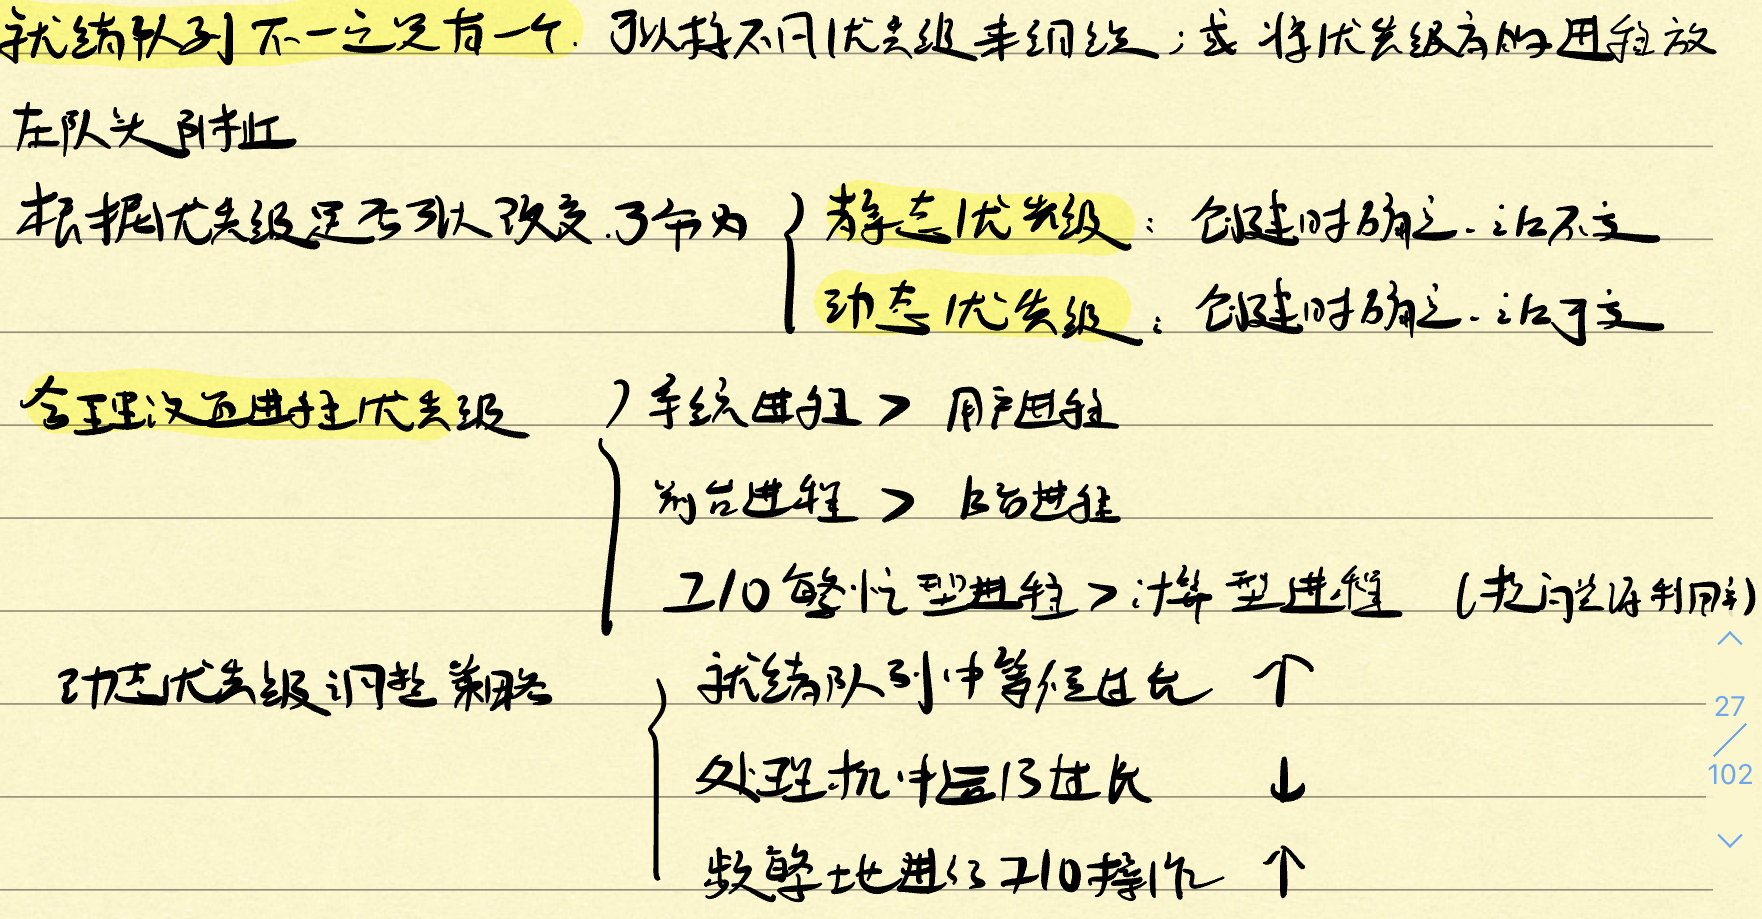 就绪队列不一定只有一个.可以按不同优先级来组织;或将优先级高的进程放
在队头附近
根据优先级是否可以改变.可分为 静态优先级: 创建时确定.之后不变
动态优先级: 创建时确定.之后可变
合理设置进程优先级 系统进程 > 用户进程
前台进程 > 后台进程
I/O繁忙型进程 > 计算型进程 (提高资源利用率)
动态优先级调整策略 就绪队列中等待过长 ↑
处理机中运行过长 ↓
频繁地进行I/O操作 ↑
27
/
102